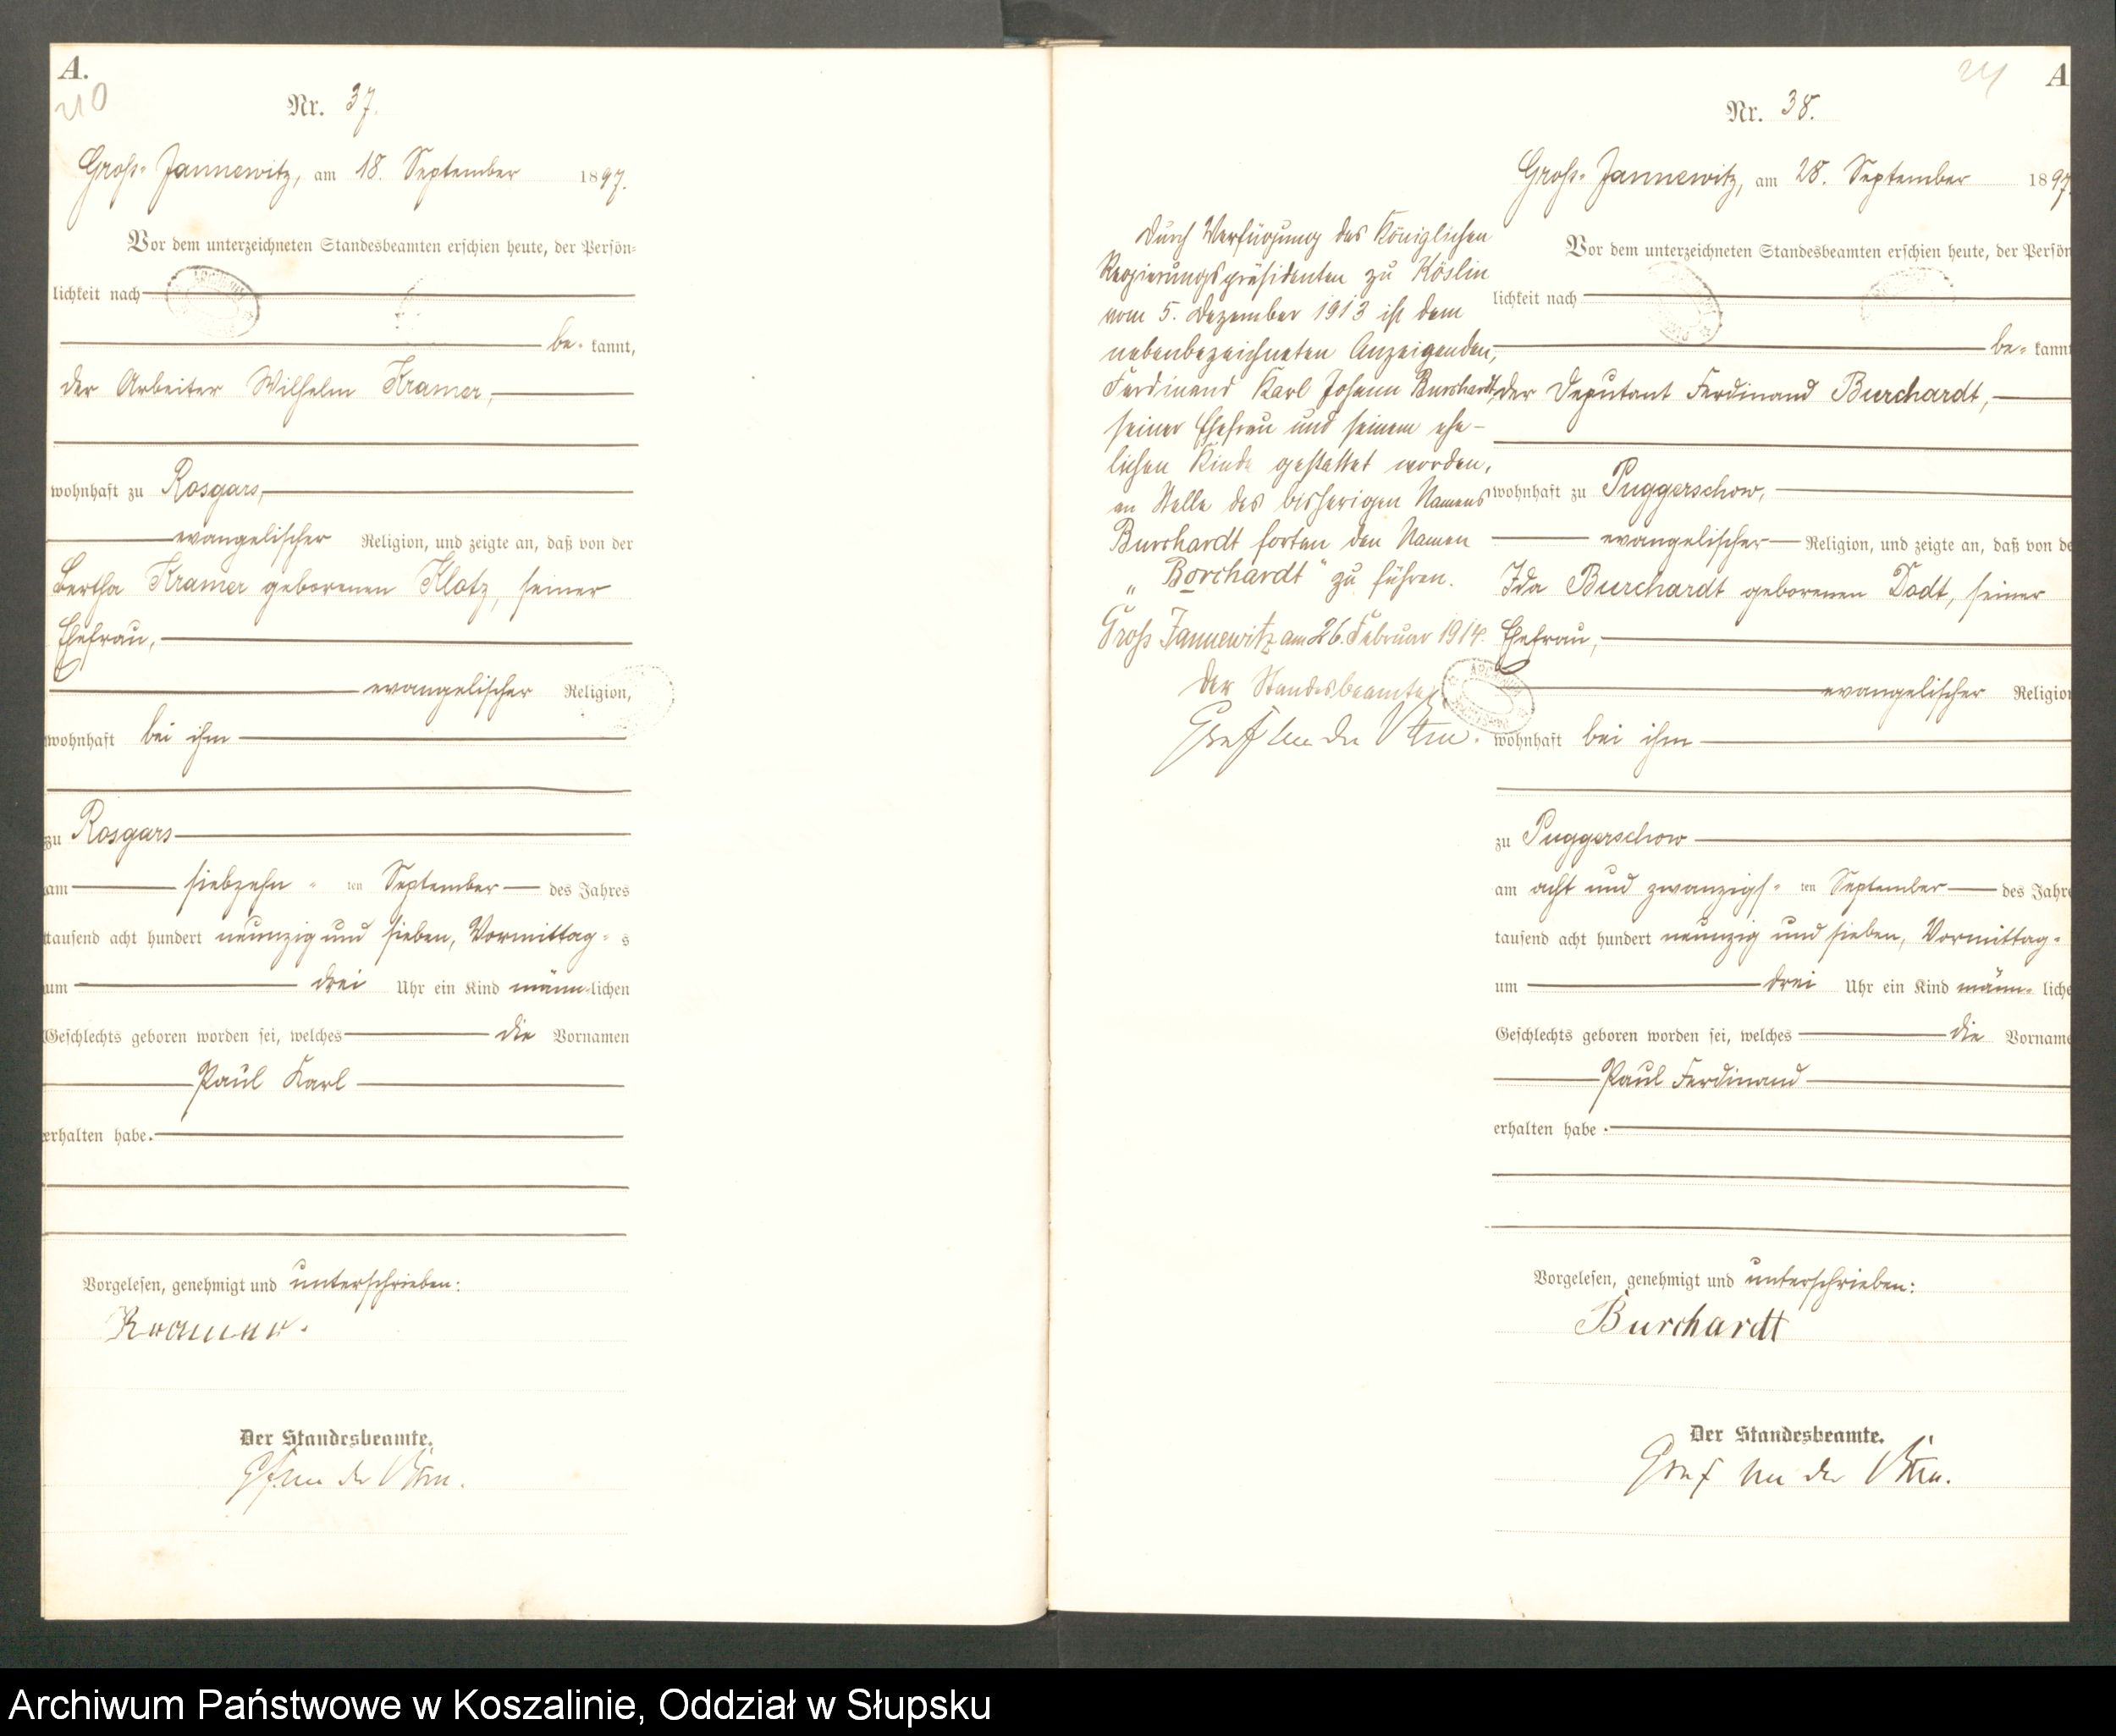 A.
Nr. 37.
Groß-Jannewitz, am 18. September 1897.
Vor dem unterzeichneten Standesbeamten erschien heute, der Persön-
lichkeit nach
be- kannt,
der Arbeiter Wilhelm Kramer,
wohnhaft zu Rosgars,
evangelischer Religion, und zeigte an, daß von der
Bertha Kramer geborenen Klotz, seiner
Ehefrau,
evangelischer Religion,
wohnhaft bei ihm
zu Rosgars
am siebzehn-ten September des Jahres
tausend acht hundert neunzig und sieben, Vormittag-s
um drei Uhr ein Kind männ-lichen
Geschlechts geboren worden sei, welches die Vornamen
Paul Karl
erhalten habe.
Vorgelesen, genehmigt und unterschrieben:
Kramer.
Der Standesbeamte.
A
Nr. 38.
Groß-Jannewitz, am 28. September 1897
Durch Verfügung des Königlichen
Regierungspräsidenten zu Köslin
vom 5. Dezember 1913 ist dem
nebenbezeichneten Anzeigenden,
Ferdinand Karl Johann Burchardt,
seiner Ehefrau und seinem ehe-
lichen Kinde gestattet worden,
an Stelle des bisherigen Namens
Burchardt fortan den Namen
„Borchardt“ zu führen.
Groß Jannewitz am 26. Februar 1914.
Der Standesbeamte
Vor dem unterzeichneten Standesbeamten erschien heute, der Persön
lichkeit nach
be- kannt
der Deputant Ferdinand Burchardt,
wohnhaft zu Puggerschow,
evangelischer Religion, und zeigte an, daß von de
Ida Burchardt geborenen Dodt, seiner
Ehefrau,
evangelischer Religion
wohnhaft bei ihm
zu Puggerschow
am acht und zwanzigs-ten September des Jahre
tausend acht hundert neunzig und sieben, Vormittag-
um drei Uhr ein Kind männ-liche
Geschlechts geboren worden sei, welches die Vorname
Paul Ferdinand
erhalten habe.
Vorgelesen, genehmigt und unterschrieben:
Burchardt
Der Standesbeamte.
Archiwum Państwowe w Koszalinie, Oddział w Słupsku